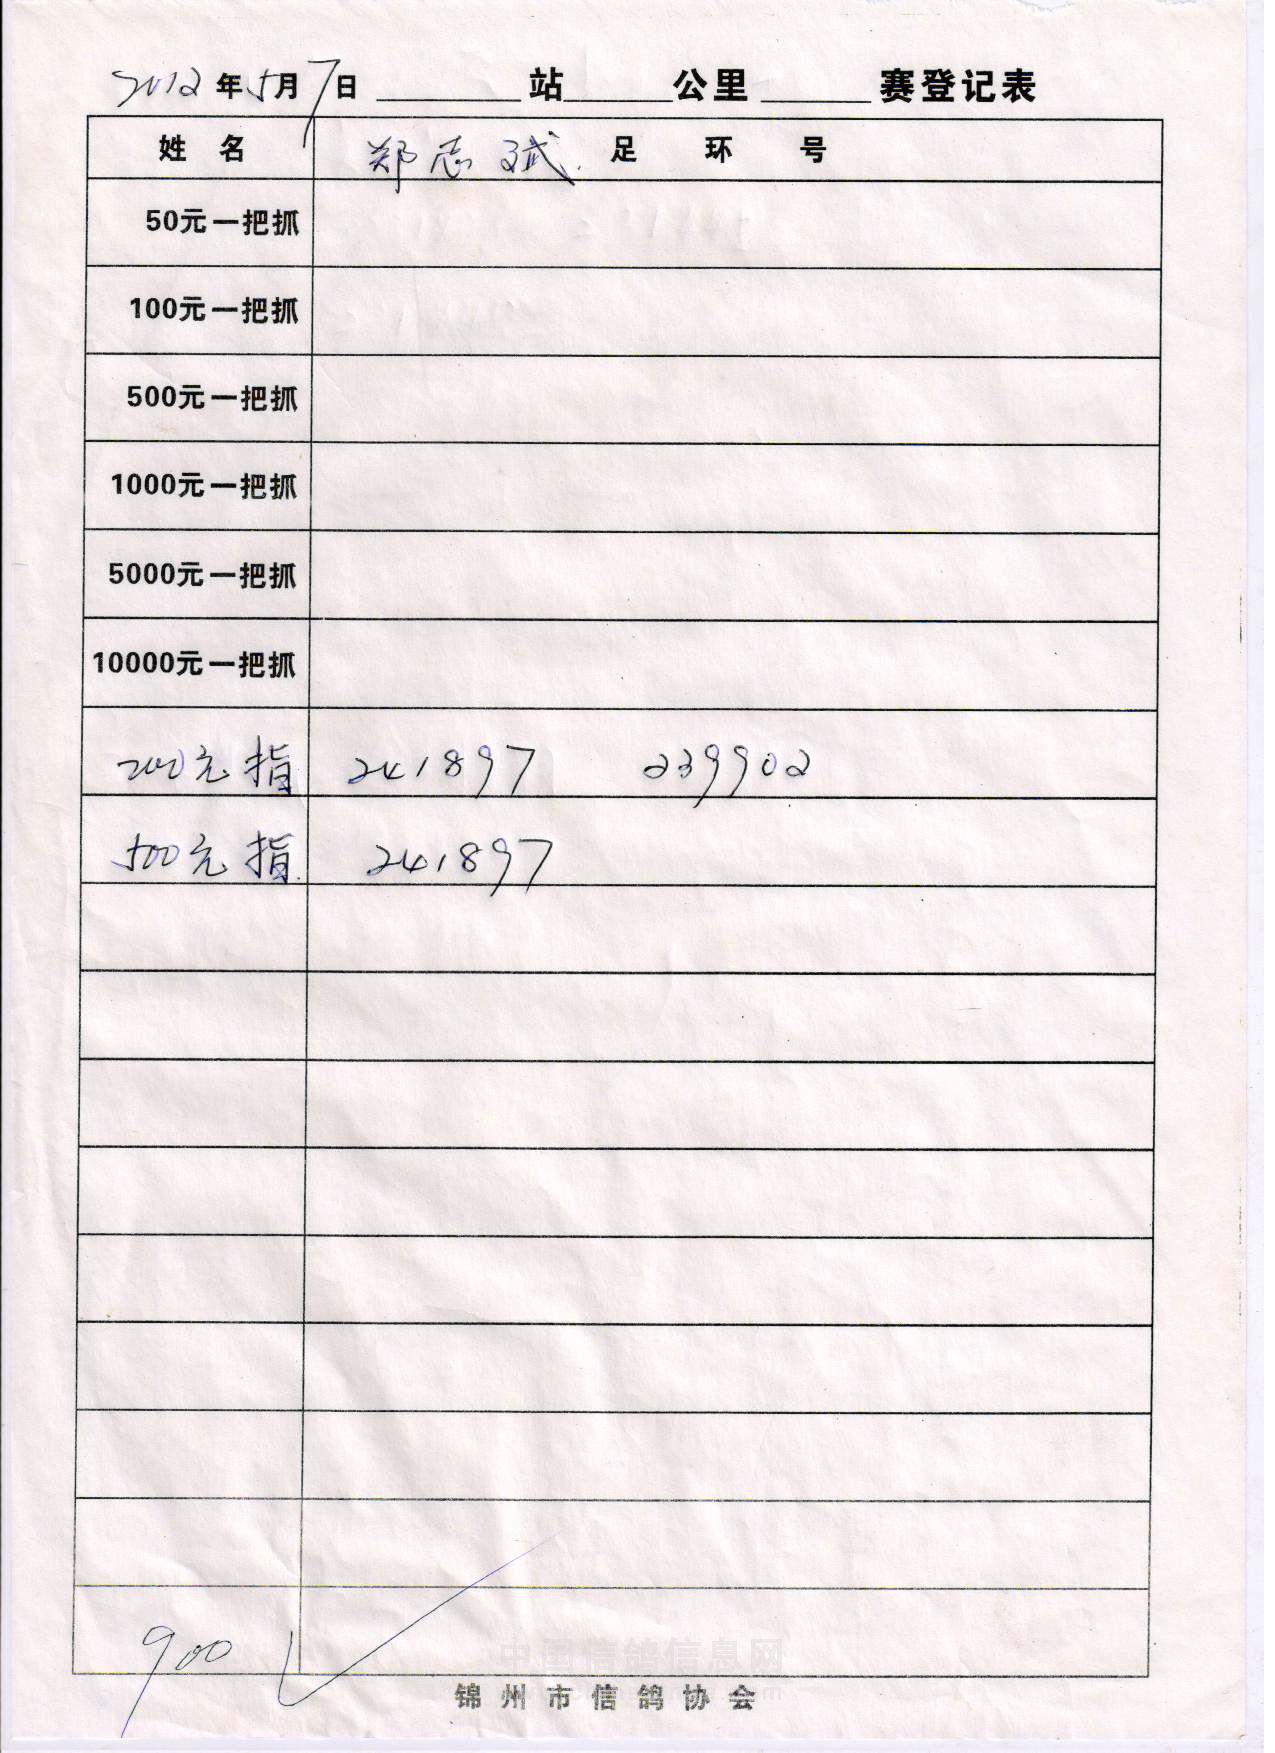 2012年5月7日 ______站______公里______赛登记表
姓 名 郑志斌 足 环 号
50元一把抓
100元一把抓
500元一把抓
1000元一把抓
5000元一把抓
10000元一把抓
200元指 241897 239902
500元指 241897
900
中国信鸽信息网
锦州市信鸽协会